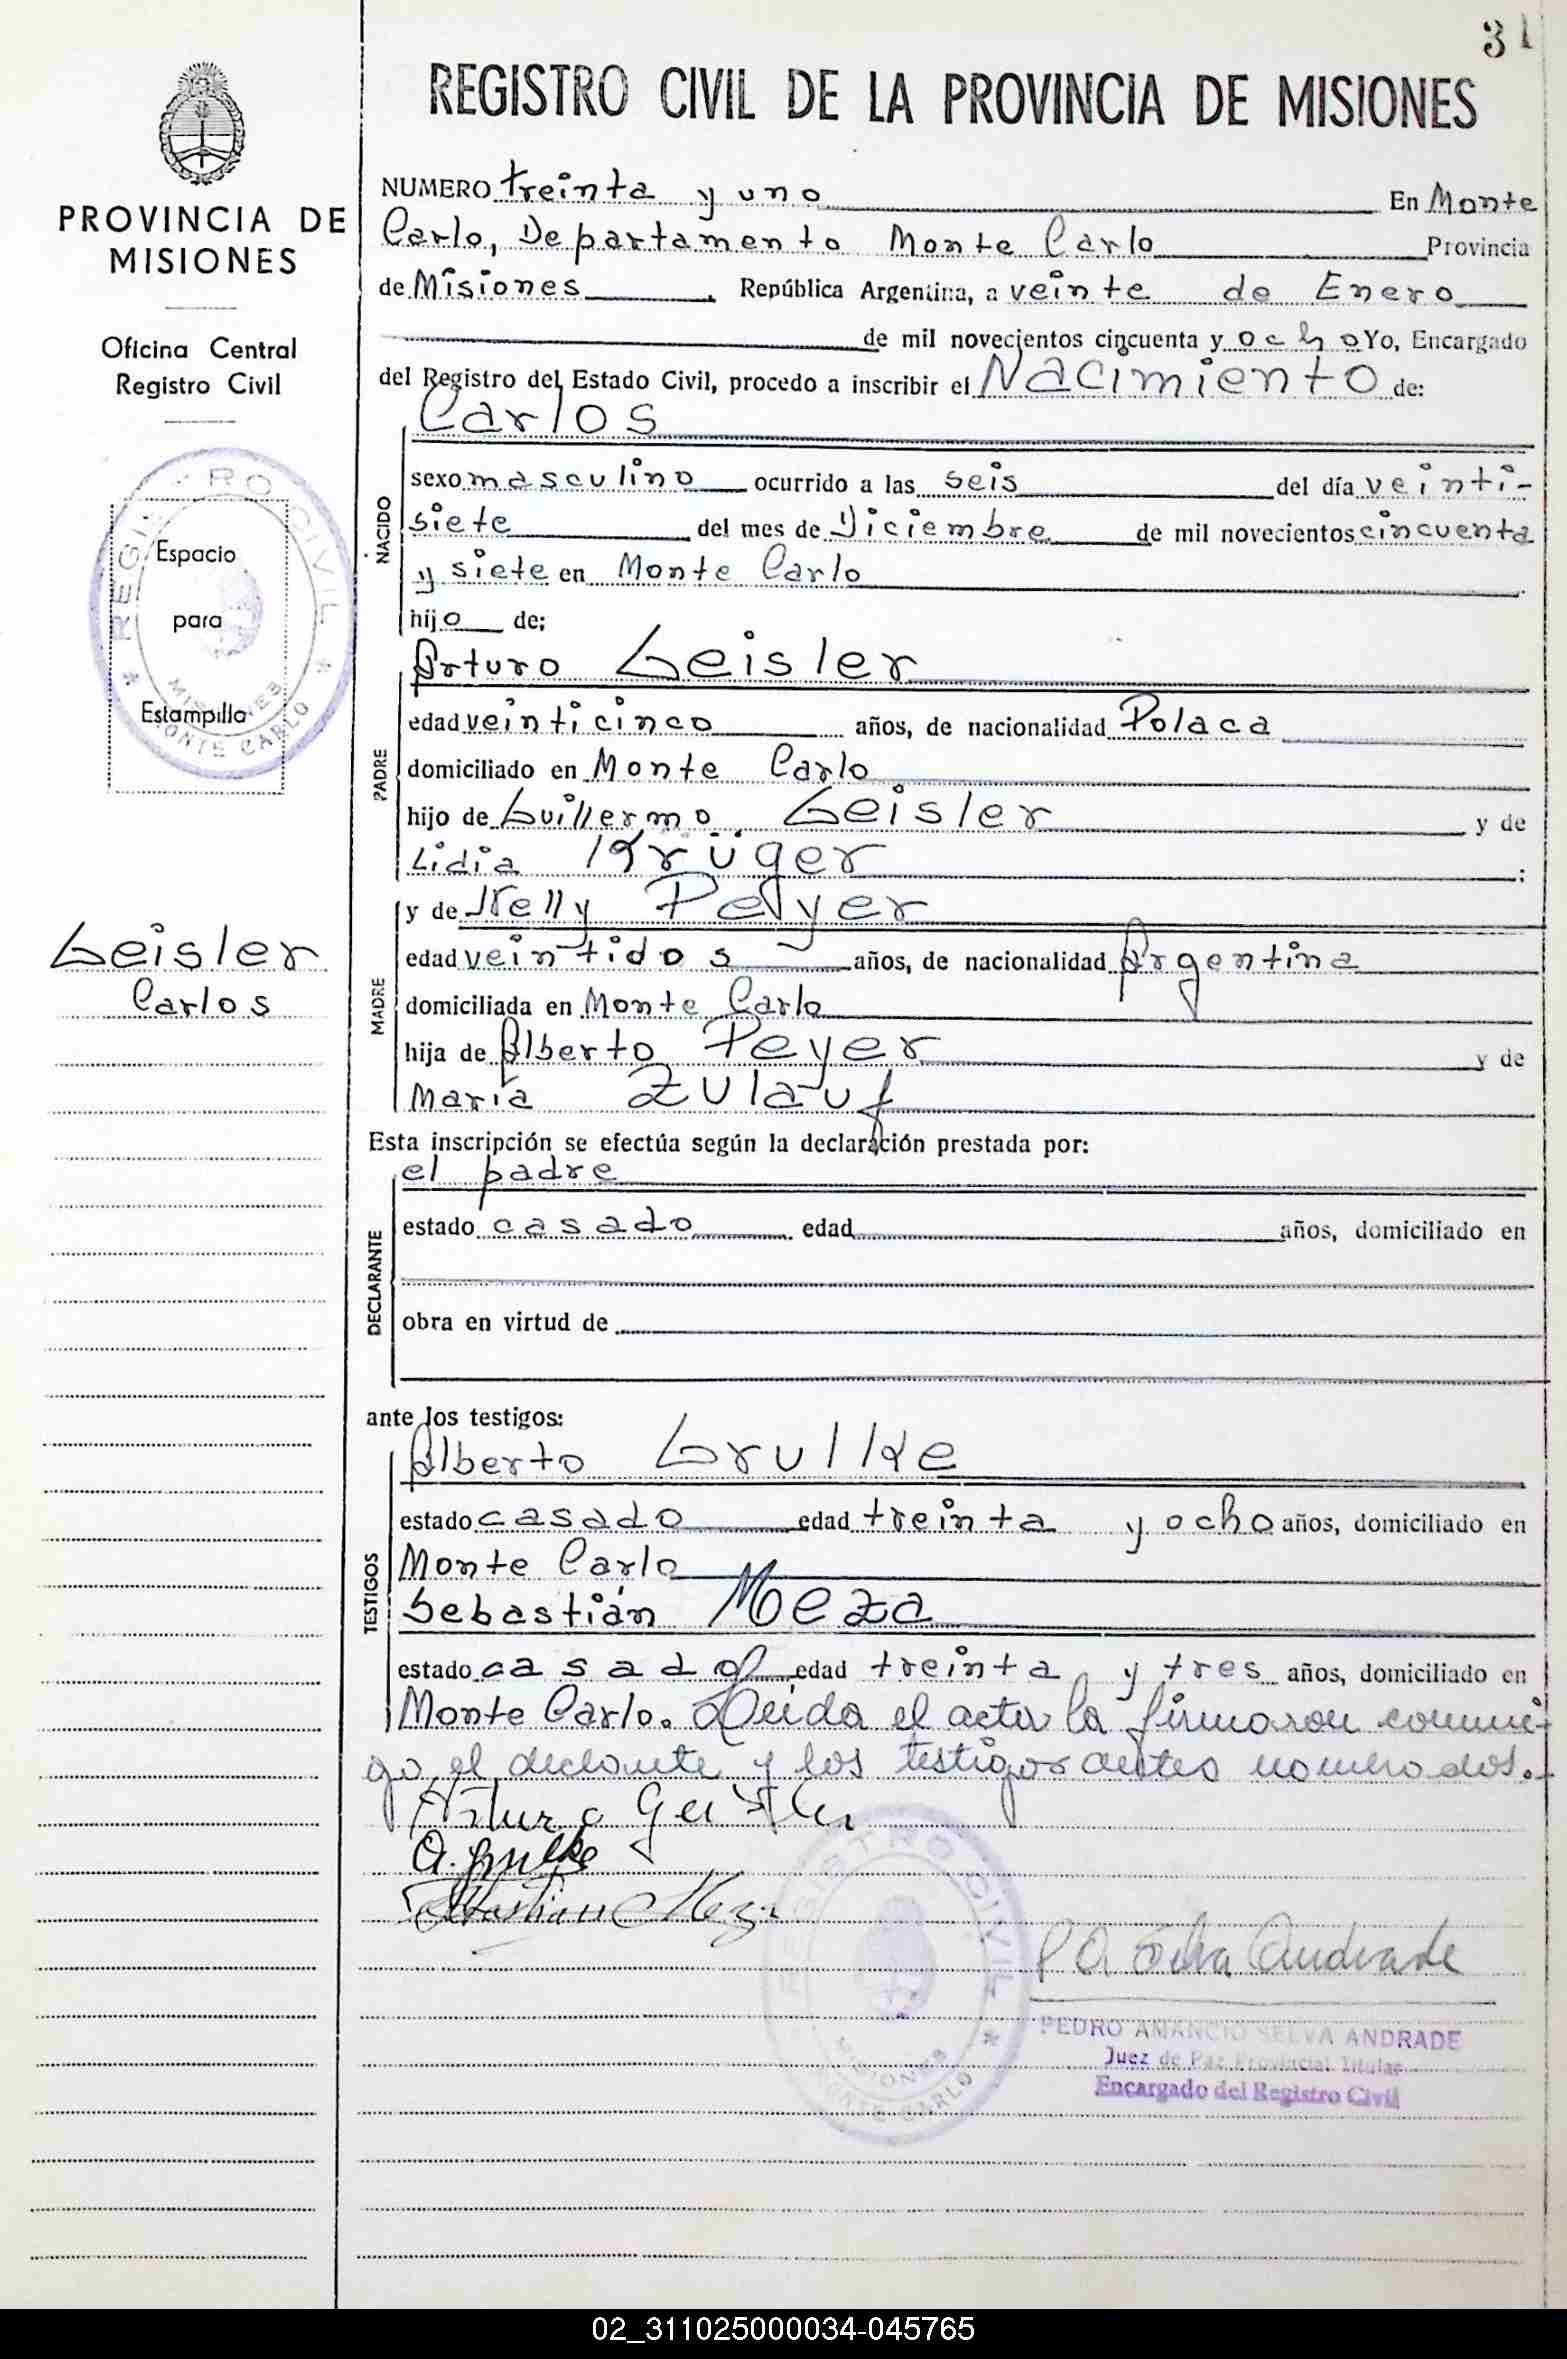 31
REGISTRO CIVIL DE LA PROVINCIA DE MISIONES
PROVINCIA DE
MISIONES
Oficina Central
Registro Civil
REGISTRO CIVIL
MISIONES
MONTE CARLO
Espacio
para
Estampilla
Geisler
Carlos
NUMERO treinta y uno En Monte
Carlo, Departamento Monte Carlo Provincia
de Misiones República Argentina, a veinte de Enero
de mil novecientos cincuenta y ocho Yo, Encargado
del Registro del Estado Civil, procedo a inscribir el Nacimiento de:
NACIDO
Carlos
sexo masculino ocurrido a las seis del día veinti-
siete del mes de Diciembre de mil novecientos cincuenta
y siete en Monte Carlo
hijo de:
PADRE
Arturo Geisler
edad veinticinco años, de nacionalidad Polaca
domiciliado en Monte Carlo
hijo de Guillermo Geisler y de
Lidia Krüger ;
MADRE
y de Nelly Peyer
edad veintidos años, de nacionalidad Argentina
domiciliada en Monte Carlo
hija de Alberto Peyer y de
María Zulauf
Esta inscripción se efectúa según la declaración prestada por:
DECLARANTE
el padre
estado casado edad años, domiciliado en
obra en virtud de
ante los testigos:
TESTIGOS
Alberto Grulke
estado casado edad treinta y ocho años, domiciliado en
Monte Carlo
Sebastián Meza
estado casado edad treinta y tres años, domiciliado en
Monte Carlo. Leida el acta la firmaron conmi-
go el declarante y los testigos antes nombrados.
Arturo Geisler
A. Grulke
Sebastian Meza
REGISTRO CIVIL
MISIONES
MONTE CARLO
P A Selva Andrade
PEDRO AMANCIO SELVA ANDRADE
Juez de Paz Provincial Titular
Encargado del Registro Civil
02_311025000034-045765